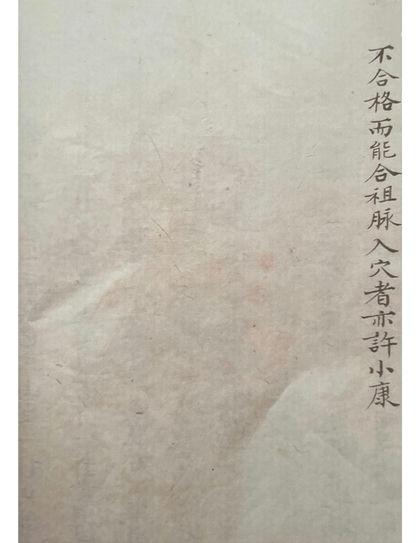 不合格而能合祖脉入穴者亦許小康